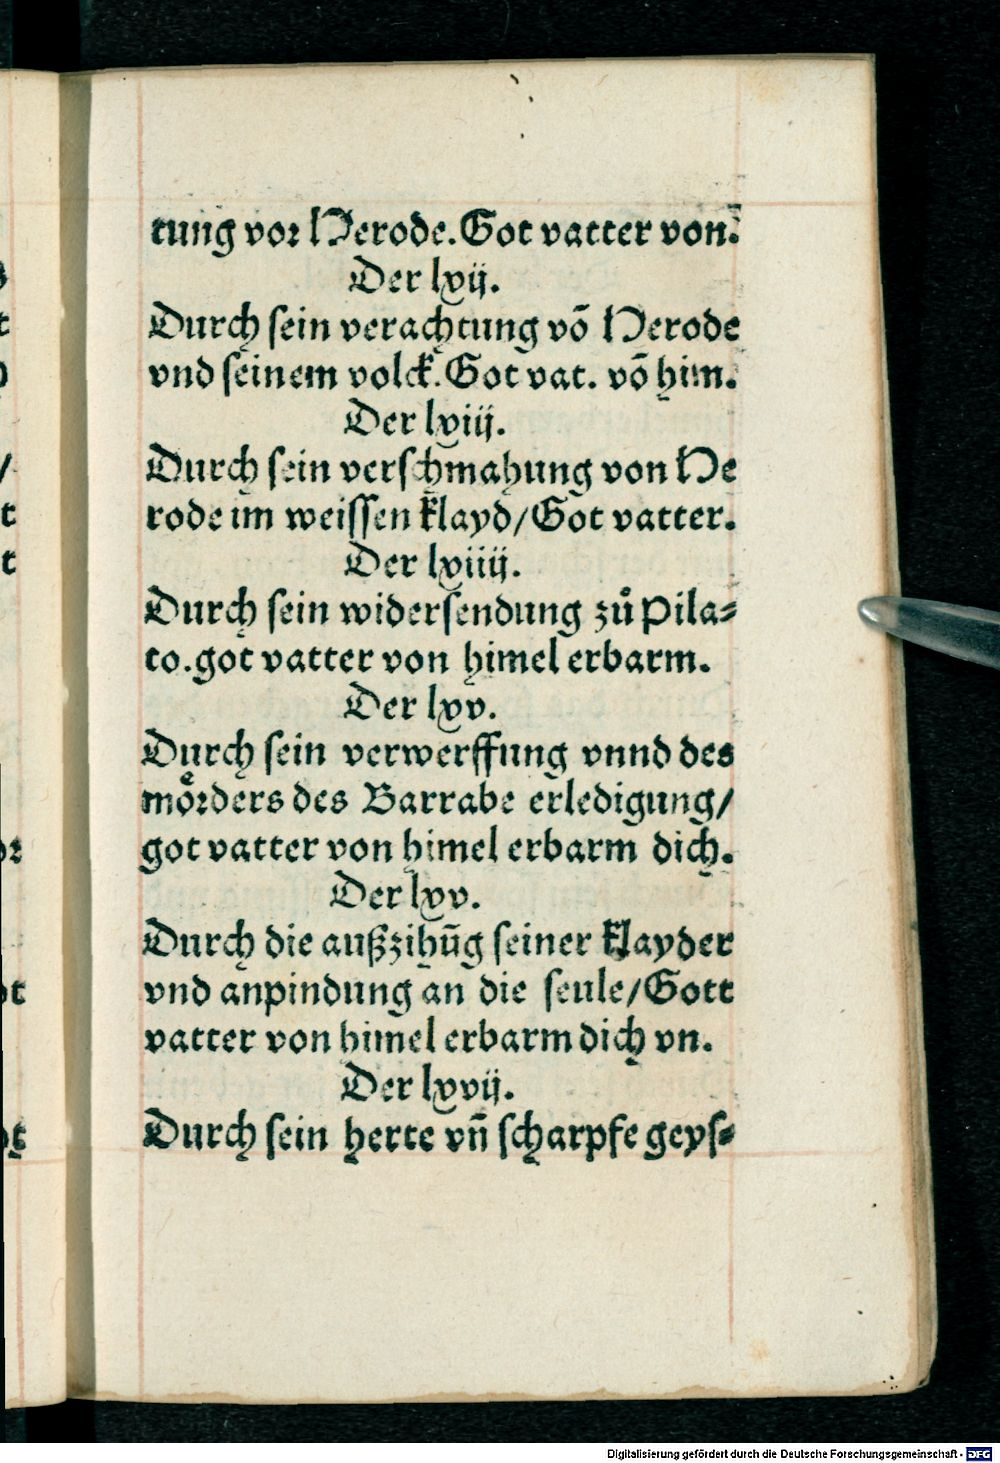 tung vor Herode. Got vatter von.
Der lxij.
Durch sein verachtung võ Herode
vnd seinem volck. Got vat. võ him.
Der lxiij.
Durch sein verschmahung von He
rode im weissen klayd/Got vatter.
Der lxiiij.
Durch sein widersendung zů Pila⸗
to. got vatter von himel erbarm.
Der lxv.
Durch sein verwerffung vnnd des
moͤrders des Barrabe erledigung/
got vatter von himel erbarm dich.
Der lxv.
Durch die außzihũg seiner klayder
vnd anpindung an die seule/Gott
vatter von himel erbarm dich vn.
Der lxvij.
Durch sein herte vñ scharpfe geys⸗
Digitalisierung gefördert durch die Deutsche Forschungsgemeinschaft - DFG